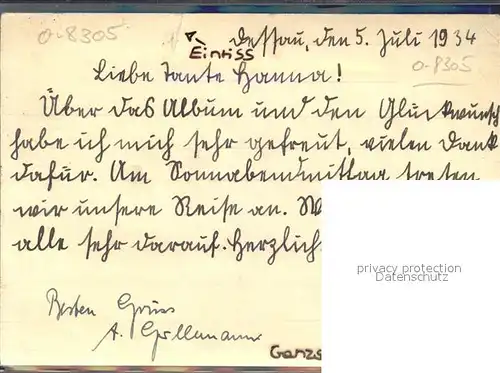 0-8305
Einriss
Dessau, den 5. Juli 1934
0-8305
Liebe Tante Hanna!
Über das Album und den Glückwunsch
habe ich mich sehr gefreut, vielen Dank
dafür. Am Sonnabendmittag treten
wir unsere Reise an.
alle sehr darauf. Herzlich
privacy protection
Datenschutz
Besten Gruss
A.